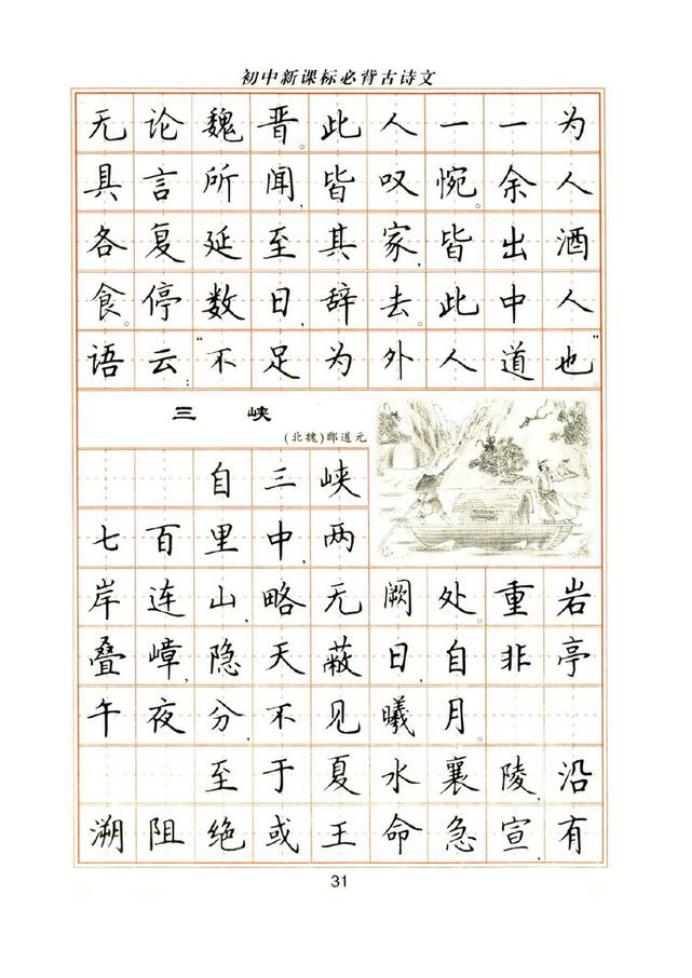 初中新课标必背古诗文
无论魏晋。此人一一为
具言所闻,皆叹惋。余人
各复延至其家,皆出酒
食。停数日,辞去。此中人
语云:“不足为外人道也”
三 峡
(北魏)郦道元
自三峡
七百里中,两
岸连山,略无阙处。重岩
叠嶂,隐天蔽日,自非亭
午夜分,不见曦月。
至于夏水襄陵,沿
溯阻绝。或王命急宣,有
31